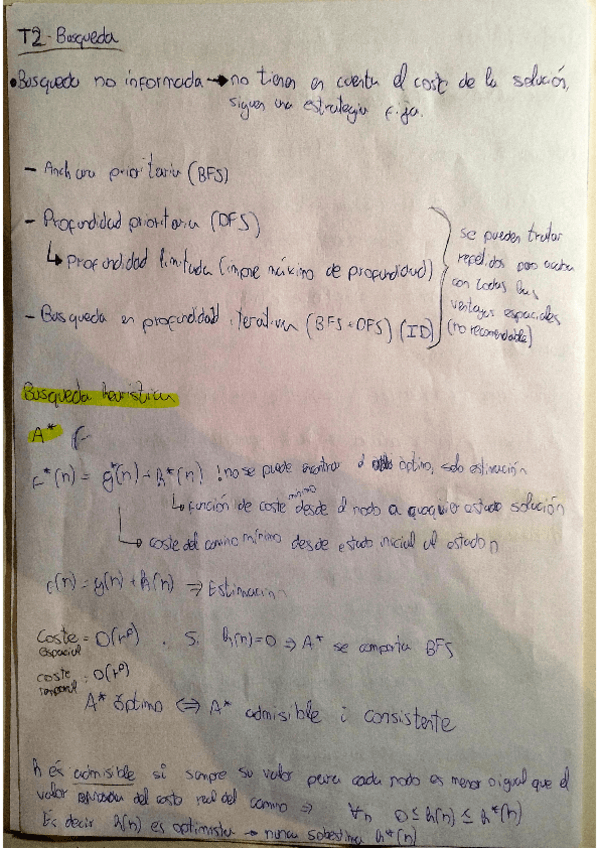 T2 - Busqueda
• Busqueda no informada → no tienen en cuenta el coste de la solución,
siguen una estrategia fija.
- Anchura prioritaria (BFS)
- Profundidad prioritaria (DFS)
↳ Profundidad limitada (impone máximo de profundidad)
- Busqueda en profundidad iterativa (BFS + DFS) (ID)
se pueden tratar
repetidos pero acaba
con todas las
ventajas espaciales
(no recomendable)
Busqueda heuristica
A* f
f*(n) = g*(n) + h*(n) ! no se puede encontrar el óptimo, solo estimación
↳ función de coste mínimo desde el nodo a cualquier estado solución
↳ coste del camino mínimo desde estado inicial al estado n
f(n) = g(n) + h(n) ⇒ Estimación
Coste espacial = O(rᵖ) . Si h(n)=0 ⇒ A* se comporta BFS
coste temporal = O(rᵖ)
A* óptimo ⇔ A* admisible i consistente
h és admisible si sempre su valor para cada nodo es menor o igual que el
valor del coste real del camino ⇒ ∀n 0 ≤ h(n) ≤ h*(n)
Es decir h(n) es optimista → nunca sobestima h*(n)